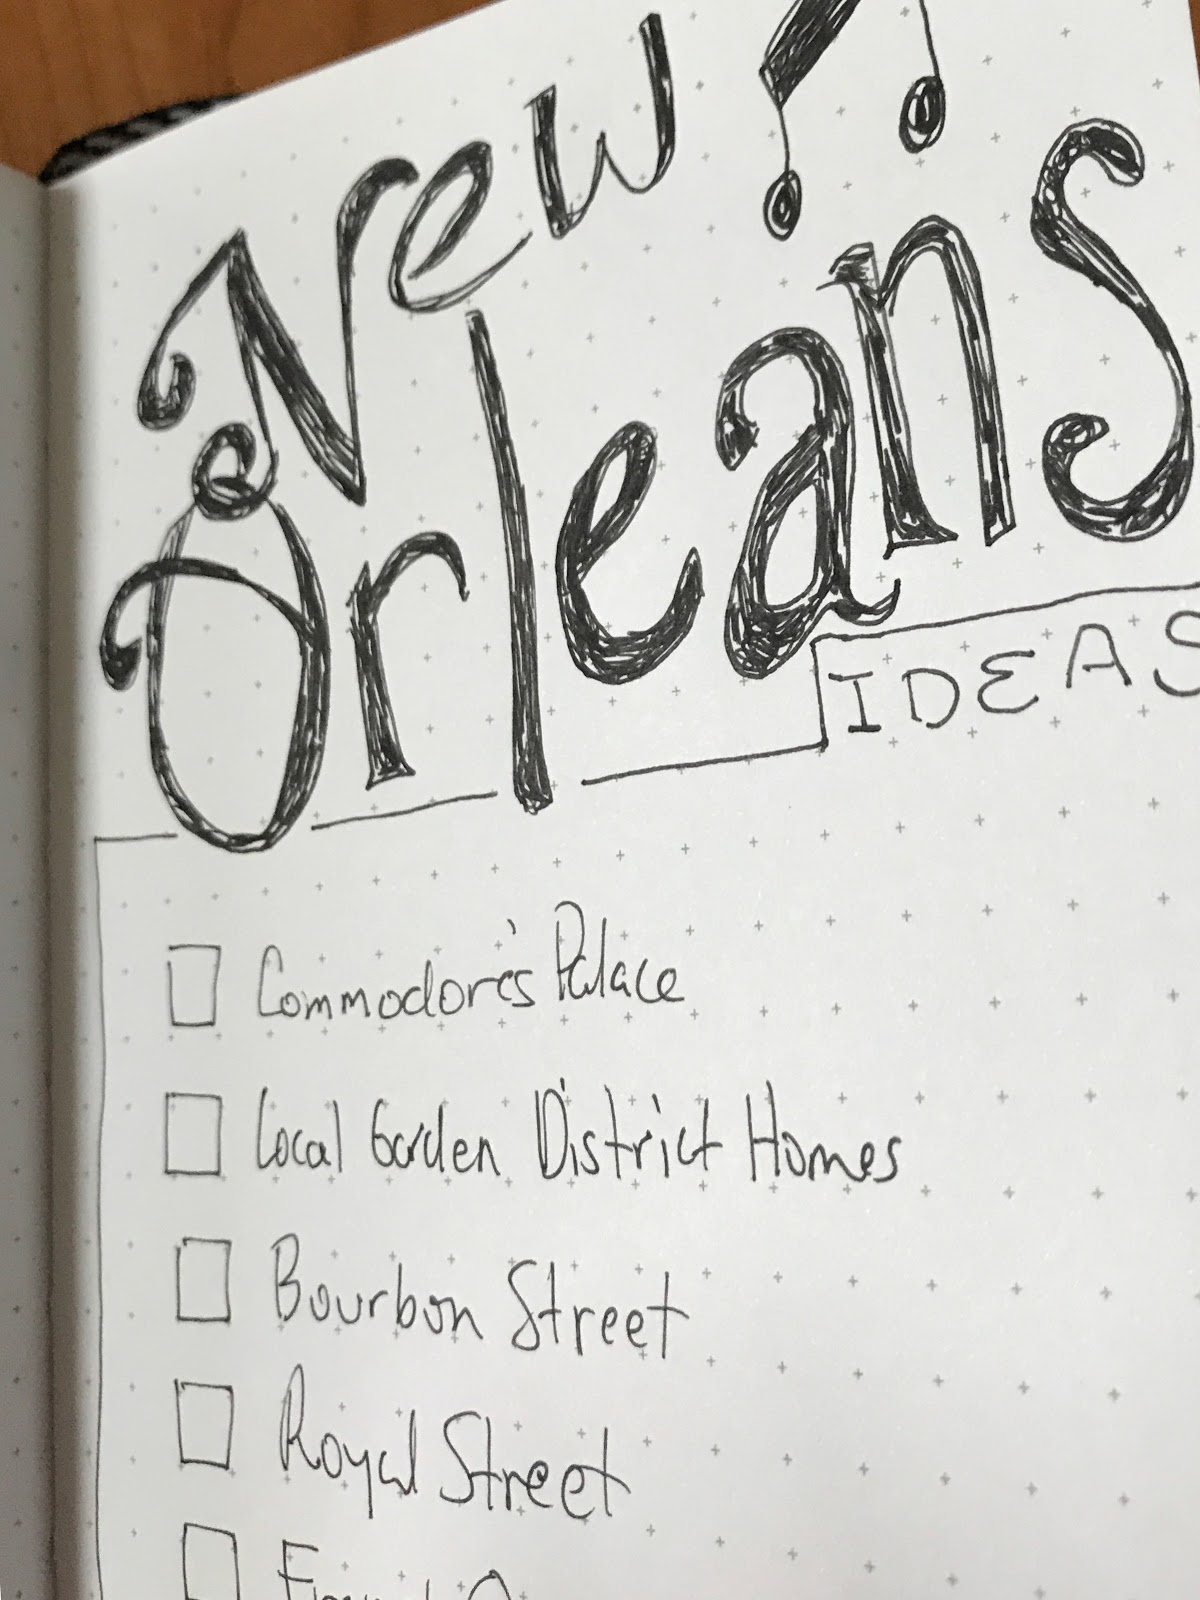 New
Orleans
IDEAS
Commodore's Palace
Local Garden District Homes
Bourbon Street
Royal Street